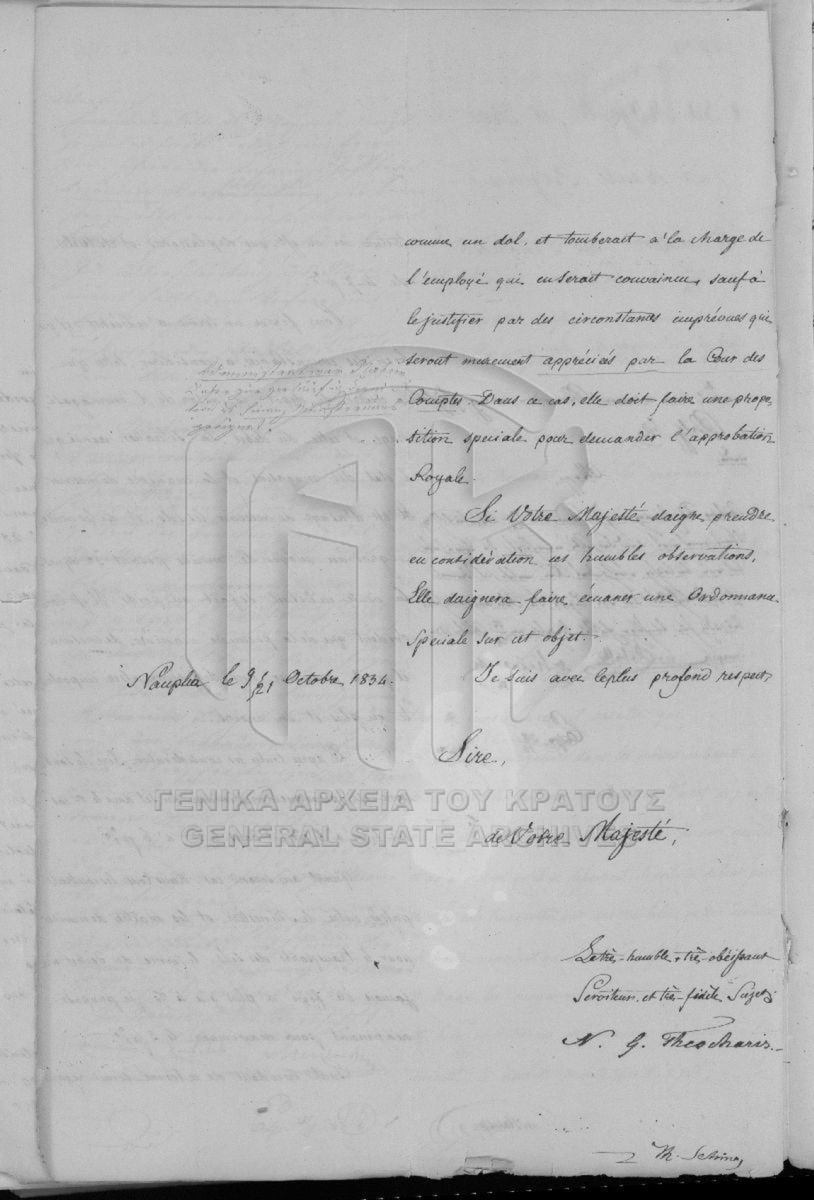 comme un dol, et tomberait à la charge de
l'employé qui en serait convaincu, sauf à
le justifier par des circonstances imprévues qui
seront murement appréciés par la Cour des
Comptes. Dans ce cas, elle doit faire une propo-
sition speciale pour demander l'approbation
Royale.
Si Votre Majesté daigne prendre
en considération ces humbles observations,
Elle daignera faire émaner une Ordonnance
Speciale sur cet objet.
Nauplia le 9/21 Octobre 1834.
Je suis avec le plus profond respect,
Sire,
de Votre Majesté,
ΓΕΝΙΚΑ ΑΡΧΕΙΑ ΤΟΥ ΚΡΑΤΟΥΣ
GENERAL STATE ARCHIVES
Le très-humble, très-obéissant
Serviteur et très-fidèle Sujet
N. G. Theocharis